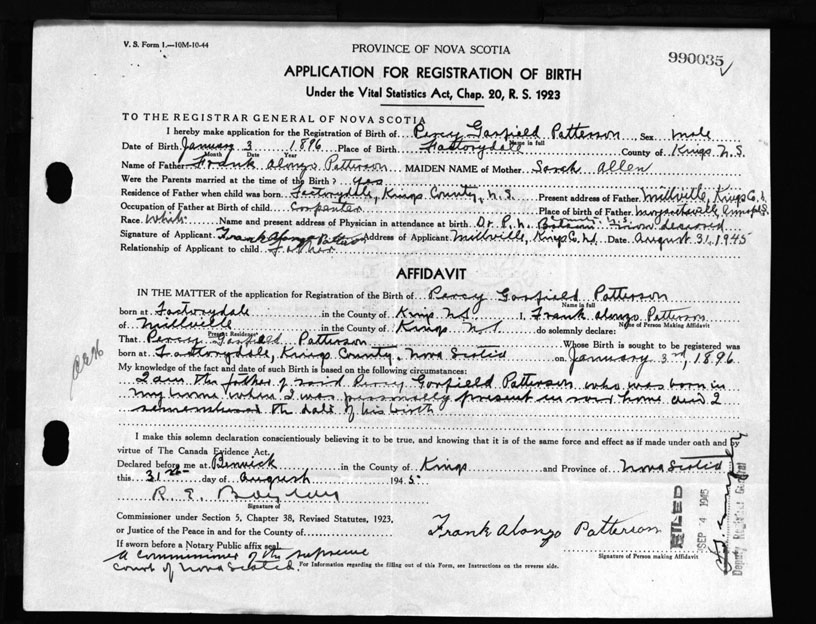 V. S. Form 1.—10M-10-44
PROVINCE OF NOVA SCOTIA
990035
APPLICATION FOR REGISTRATION OF BIRTH
Under the Vital Statistics Act, Chap. 20, R. S. 1923
TO THE REGISTRAR GENERAL OF NOVA SCOTIA
I hereby make application for the Registration of Birth of Percy Garfield Patterson, Sex male
Name in full
Date of Birth January 3 1896 Place of Birth Factorydale County of Kings N.S.
Month Date Year
Name of Father Frank Alonzo Patterson MAIDEN NAME of Mother Sarah Allen
Were the Parents married at the time of the Birth? yes
Residence of Father when child was born Factorydale, Kings County, N.S. Present address of Father Millville, Kings Co.
Occupation of Father at Birth of child Carpenter Place of birth of Father Margaretsville
Race White Name and present address of Physician in attendance at birth Dr. P. N. N.S. now deceased
Signature of Applicant Frank Alonzo Patterson Address of Applicant Millville, Kings Co. Date August 31, 1945
Relationship of Applicant to child Father
AFFIDAVIT
IN THE MATTER of the application for Registration of the Birth of Percy Garfield Patterson
Name in full
born at Factorydale in the County of Kings N.S. I, Frank Alonzo Patterson
Name of Person Making Affidavit
of Millville in the County of Kings N.S. do solemnly declare:
Present Residence
That Percy Garfield Patterson Whose Birth is sought to be registered was
born at Factorydale, Kings County, Nova Scotia on January 3rd, 1896
My knowledge of the fact and date of such Birth is based on the following circumstances:
I am the father of said Percy Garfield Patterson who was born in
my home when I was personally present in said home and I
remembered the date of his birth
I make this solemn declaration conscientiously believing it to be true, and knowing that it is of the same force and effect as if made under oath and by
virtue of The Canada Evidence Act.
Declared before me at Berwick in the County of Kings and Province of Nova Scotia
this 31st day of August 1945.
R. E.
Signature of
Commissioner under Section 5, Chapter 38, Revised Statutes, 1923,
or Justice of the Peace in and for the County of
Frank Alonzo Patterson
Signature of Person making Affidavit
If sworn before a Notary Public affix seal
A commissioner of the supreme
court of Nova Scotia.
For Information regarding the filling out of this Form, see Instructions on the reverse side.
FILED
SEP 4 1945
Deputy Registrar General